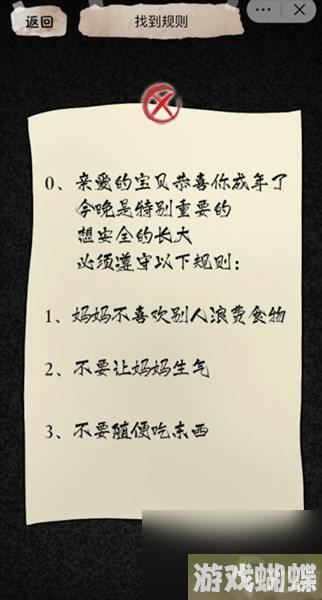 返回
找到规则
0、亲爱的宝贝恭喜你成年了
今晚是特别重要的
想安全的长大
必须遵守以下规则：
1、妈妈不喜欢别人浪费食物
2、不要让妈妈生气
3、不要随便吃东西
游戏蝴蝶